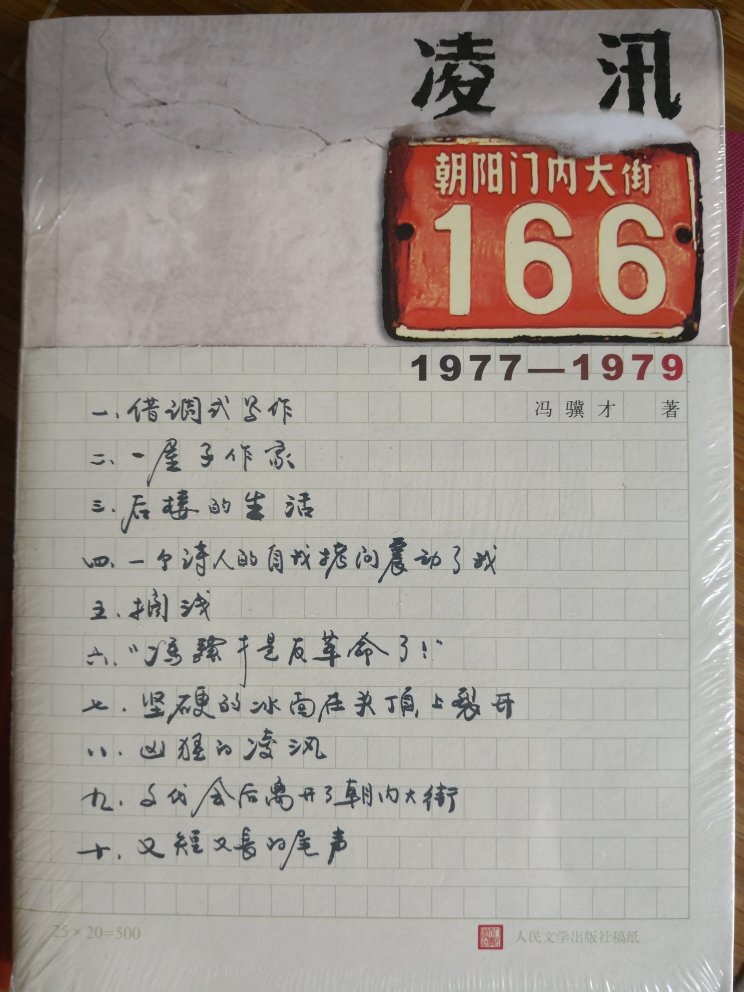 凌汛
朝阳门内大街
166
1977—1979
冯骥才 著
一、借调式写作
二、一屋子作家
三、后楼的生活
四、一个诗人的自我拷问震动了我
五、搁浅
六、“冯骥才是反革命了!”
七、坚硬的冰面在头顶上裂开
八、凶猛的凌汛
九、文代会后离开了朝内大街
十、又短又长的尾声
25×20=500
人民文学出版社稿纸